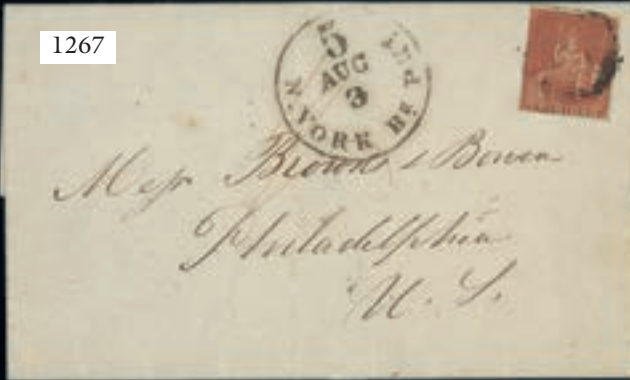 1267
5
AUG
3
N. YORK BR. PKT
Mess Brown & Bowen
Philadelphia
U. S.